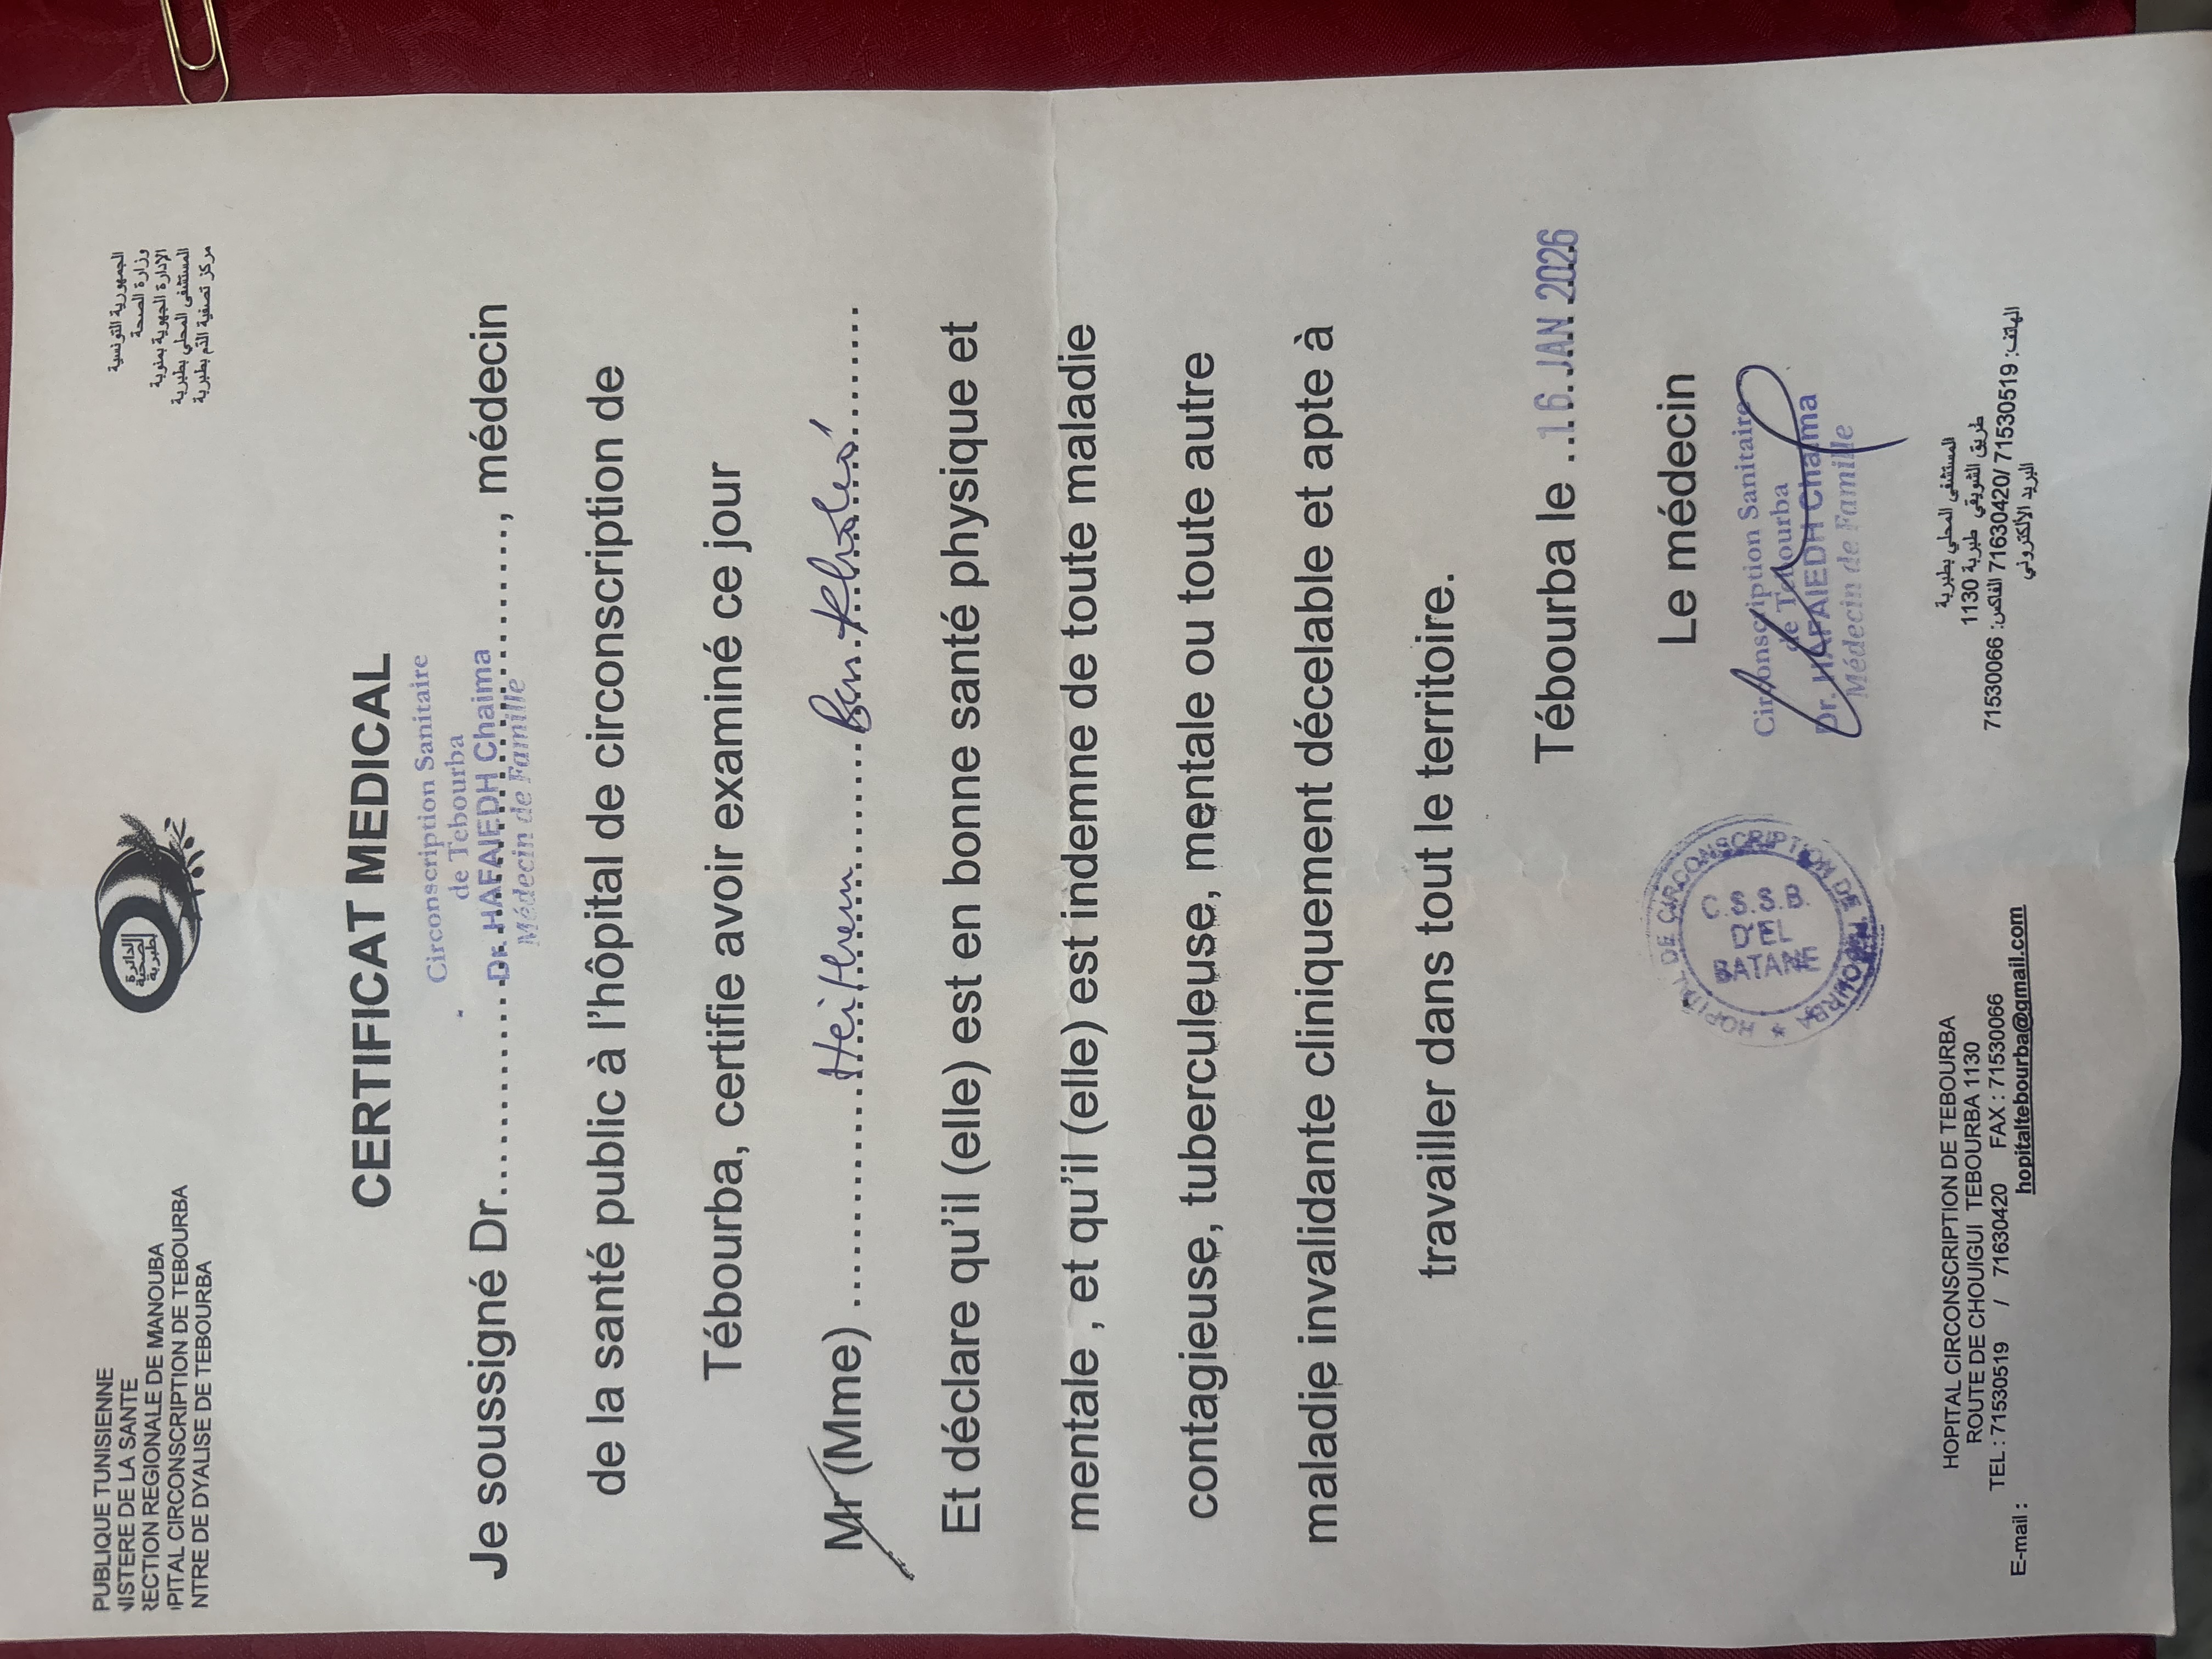 PUBLIQUE TUNISIENNE
NISTERE DE LA SANTE
RECTION REGIONALE DE MANOUBA
PITAL CIRCONSCRIPTION DE TEBOURBA
NTRE DE DYALISE DE TEBOURBA
الدائرة
الصحية
بطبربة
الجمهورية التونسية
وزارة الصحة
الإدارة الجهوية بمنوبة
المستشفى المحلي بطبربة
مركز تصفية الدم بطبربة
CERTIFICAT MEDICAL
Circonscription Sanitaire
de Tebourba
Je soussigné Dr............Dr. HAFAIEDH Chaima............, médecin
Médecin de Famille
de la santé public à l'hôpital de circonscription de
Tébourba, certifie avoir examiné ce jour
Mr (Mme) ............Heithem ............ Ben Khalea............
Et déclare qu'il (elle) est en bonne santé physique et
mentale , et qu'il (elle) est indemne de toute maladie
contagieuse, tuberculeuse, mentale ou toute autre
maladie invalidante cliniquement décelable et apte à
travailler dans tout le territoire.
Tébourba le ...16 JAN 2026
Le médecin
Circonscription Sanitaire
de Tebourba
Dr. HAFAIEDH Chaima
Médecin de Famille
HOPITAL DE CIRCONSCRIPTION DE TEBOURBA
C.S.S.B.
BATAN
HOPITAL CIRCONSCRIPTION DE TEBOURBA
ROUTE DE CHOUIGUI TEBOURBA 1130
TEL : 71530519 / 71630420 FAX : 71530066
E-mail : hopitaltebourba@gmail.com
المستشفى المحلي بطبربة
طريق الشويقي طبربة 1130
الهاتف: 71530519 /71630420 الفاكس: 71530066
البريد الألكتروني